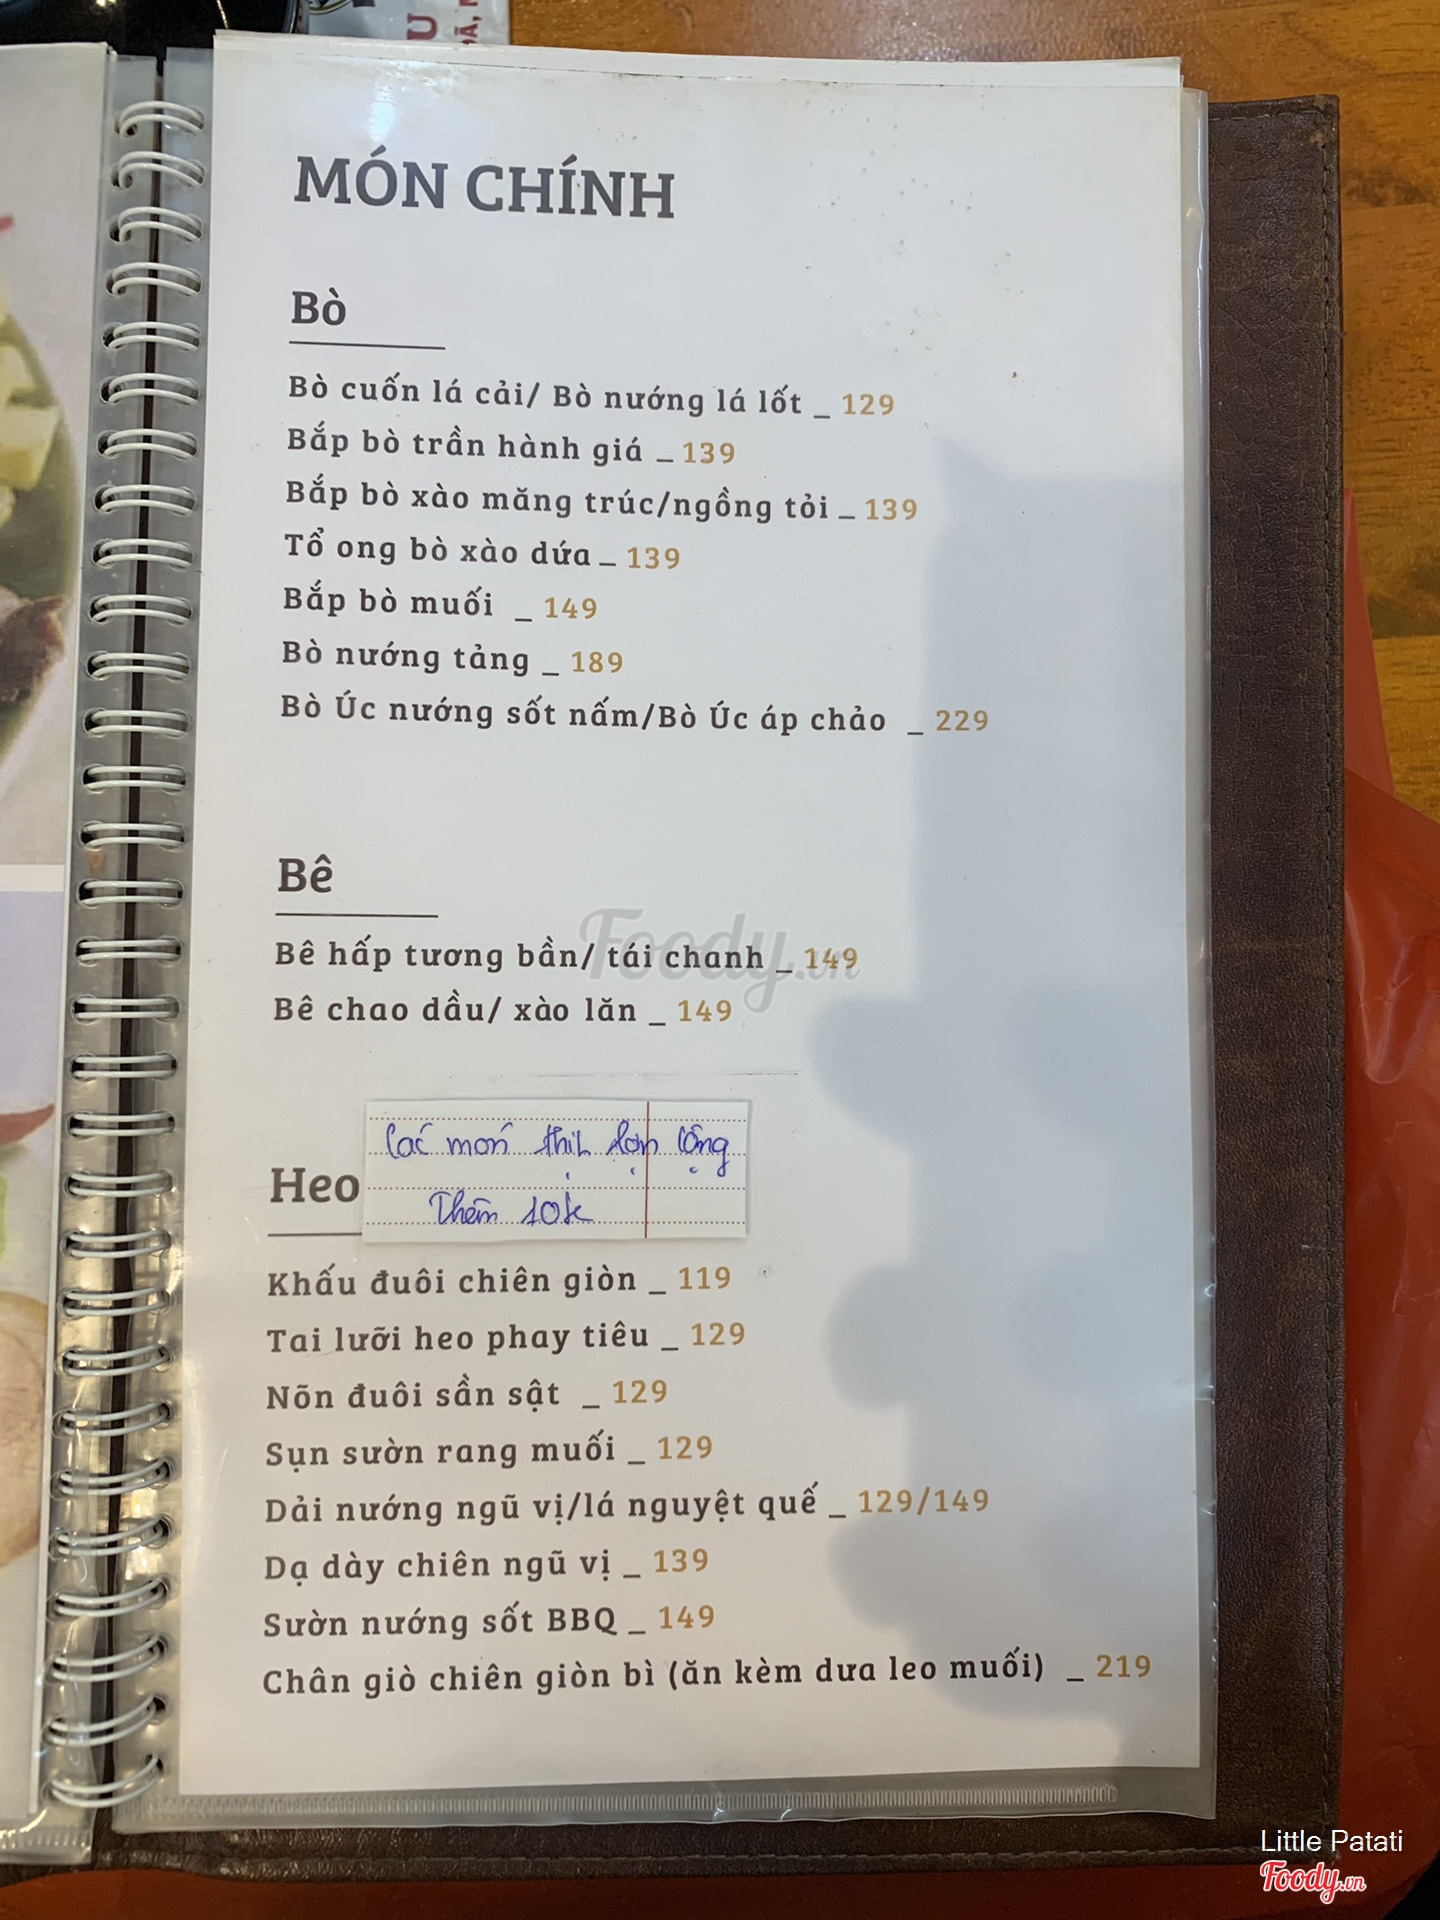 MÓN CHÍNH
Bò
Bò cuốn lá cải/ Bò nướng lá lốt _ 129
Bắp bò trần hành giá _ 139
Bắp bò xào măng trúc/ngồng tỏi _ 139
Tổ ong bò xào dứa _ 139
Bắp bò muối _ 149
Bò nướng tảng _ 189
Bò Úc nướng sốt nấm/Bò Úc áp chảo _ 229
Bê
Bê hấp tương bần/ tái chanh _ 149
Foody.vn
Bê chao dầu/ xào lăn _ 149
Các món thịt lợn cộng
Heo
Thêm 10k
Khấu đuôi chiên giòn _ 119
Tai lưỡi heo phay tiêu _ 129
Nõn đuôi sần sật _ 129
Sụn sườn rang muối _ 129
Dải nướng ngũ vị/lá nguyệt quế _ 129/149
Dạ dày chiên ngũ vị _ 139
Sườn nướng sốt BBQ _ 149
Chân giò chiên giòn bì (ăn kèm dưa leo muối) _ 219
Little Patati
Foody.vn